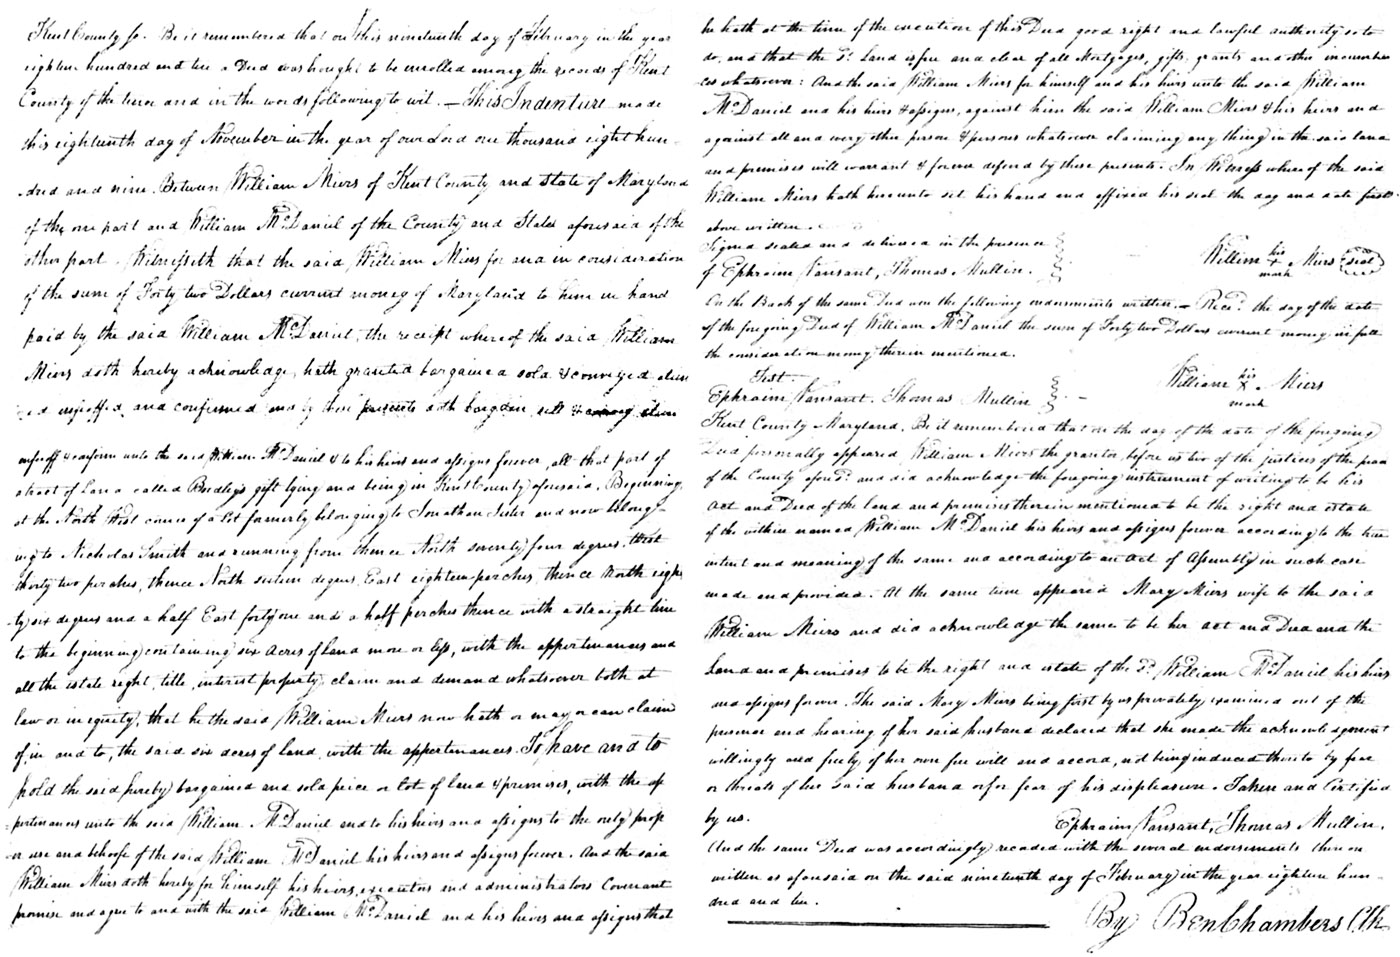 Kent County ss. Be it remembered that on this nineteenth day of February in the year
eighteen hundred and ten a Deed was brought to be enrolled among the records of Kent
County of the tenor and in the words following to wit. — This Indenture made
this eighteenth day of November in the year of our Lord one thousand eight hun-
dred and nine, Between William Miers of Kent County and State of Maryland
of the one part and William McDaniel of the County and State aforesaid of the
other part. Witnesseth that the said William Miers for and in consideration
of the sum of Forty two Dollars current money of Maryland to him in hand
paid by the said William McDaniel, the receipt whereof the said William
Miers doth hereby acknowledge, hath granted bargained sold & conveyed alien
ed enfeoffed, and confirmed and by these presents doth bargain, sell & alien
enfeoff & confirm unto the said William McDaniel & to his heirs and assigns forever, all that part of
a tract of Land called gift lying and being in Kent County aforesaid, Beginning
at the North West corner of a Lot formerly belonging to Jonathan and now belong-
ing to Nicholas Smith and running from thence North seventy four degrees, West
thirty two perches, thence North sixteen degrees, East eighteen perches, thence North eigh
ty six degrees and a half East forty one and a half perches thence with a straight line
to the beginning containing six acres of Land more or less, with the appertenances and
all the estate right, title, interest property, claim and demand whatsoever both at
law or in equity, that he the said William Miers now hath or may or can claim
of, in and to, the said six acres of land, with the appertenances. To have and to
hold the said hereby bargained and sold peice or Lot of land & premises, with the ap
pertenances unto the said William McDaniel and to his heirs and assigns to the only prop
er use and behoofe of the said William McDaniel his heirs and assigns forever. And the said
William Miers doth hereby for himself his heirs, executors and administrators Covenant
promise and agree to and with the said William McDaniel and his heirs and assigns that
he hath at the time of the execution of this Deed good right and lawful authority so to
do, and that the sd. Land is free and clear of all Mortgages, gifts, grants and other incumbran
ces whatsoever: And the said William Miers for himself and his heirs unto the said William
McDaniel and his heirs & assigns, against him the said William Miers & his heirs and
against all and every other person & persons whatsoever claiming any thing in the said land
and premises will warrant & forever defend by these presents. In Witness whereof the said
William Miers hath hereunto set his hand and affixed his seal the day and date first
above written.
Signed sealed and delivered in the presence
of Ephraim Vansant, Thomas Mullin. William his x mark Miers seal
On the Back of the same Deed was the following endorsments written. — Recd. the day of the date
of the foregoing Deed of William McDaniel the sum of Forty two Dollars current money in full
the consideration money therein mentioned.
Test.
Ephraim Vansant. Thomas Mullin William his x mark Miers
Kent County Maryland. Be it remembered that on the day of the date of the foregoing
Deed personally appeared William Miers the grantor, before us two of the justices of the peace
of the County aforsd. and did acknowledge the foregoing instrument of writing to be his
act and Deed of the land and premises therein mentioned to be the right and estate
of the within named William McDaniel his heirs and assigns forever according to the true
intent and meaning of the same and according to an act of Assembly in such case
made and provided. At the same time appeared Mary Miers wife to the said
William Miers and did acknowledge the same to be her act and Deed and the
Land and premises to be the right and estate of the sd. William McDaniel his heirs
and assigns forever. The said Mary Miers being first by us privately examined out of the
presence and hearing of her said husband declared that she made the acknowledgement
willingly and freely, of her own free will and accord, not being induced thereto by fear
or threats of her said husband or for fear of his displeasure. Taken and Certified
by us. Ephraim Vansant, Thomas Mullin.
And the same Deed was accordingly recorded with the several endorsements thereon
written as aforesaid on the said nineteenth day of February in the year eighteen hun-
dred and ten.
By Ben Chambers Clk